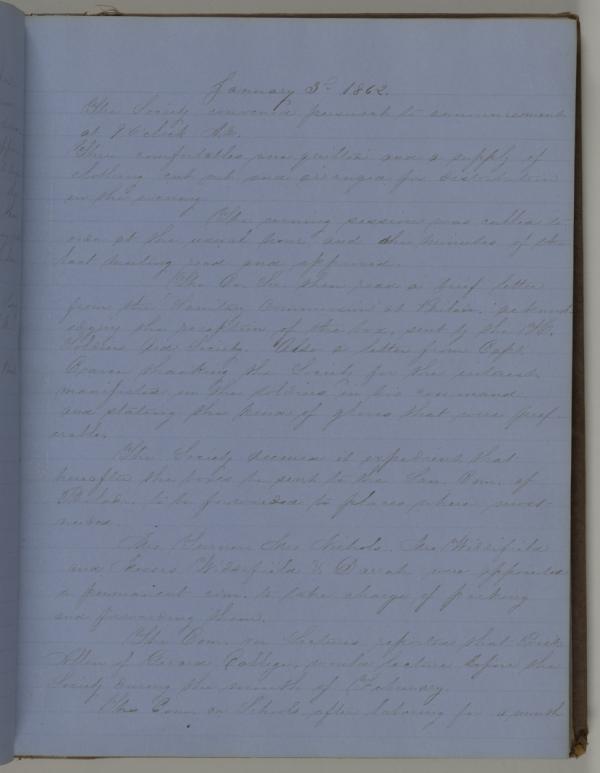 January 3d 1862.
The Society convened pursuant to announcement
at 2 O'clock P.M.
Three comfortables were quilted and a supply of
clothing cut out and arranged for distribution
in the evening.
The evening session was called to
order at the usual hour and the minutes of the
last meeting read and approved.
The Cor. Sec. then read a brief letter
from the Sanitary Commission at Philad. acknowl-
edging the reception of the box, sent by the
Soldiers Aid Society. Also a letter from Capt.
thanking the Society for the interest
manifested in the soldiers in his command
and stating the kind of gloves that were pref-
erable.
The Society deemed it expedient that
hereafter the boxes be sent to the San. Com. of
Philad. to be forwarded to places where most
needed.
Mrs. Mrs Nichols. Mrs Widdifield
and Messrs Widdifield & Darrah were appointed
a permanent com. to take charge of packing
and forwarding them.
The Com. on Lectures reported that
Allen of Girard College, would lecture before the
Society during the month of February.
The Com. on Schools after laboring for a month